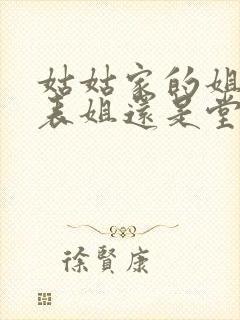 姑姑家的姐
表姐還是堂
徐賢康